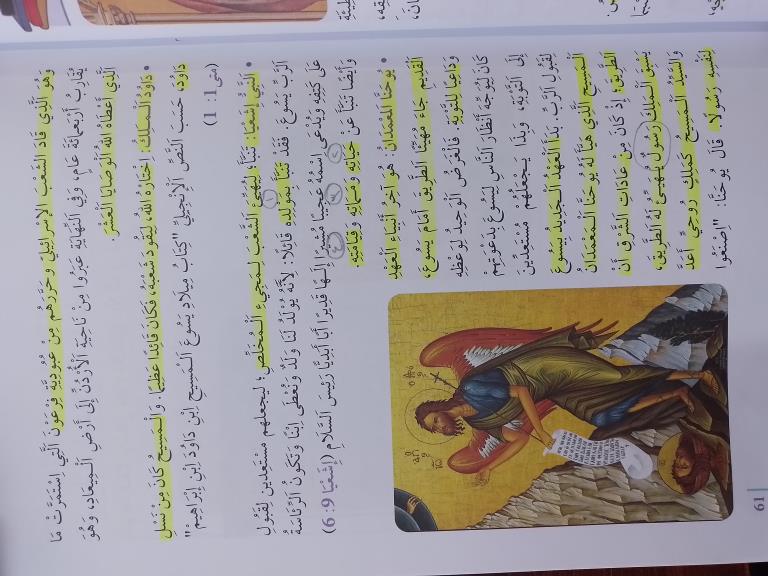 وَهُوَ الَّذِي قَادَ الشَّعْبَ الإِسْرَائِيلِيَّ وَحَرَّرَهُمْ مِنْ عُبُودِيَّةِ فِرْعَوْنَ الَّتِي اسْتَمَرَّتْ مَا
يُقَارِبُ أَرْبَعَمِائَةِ عَامٍ، وَفِي النِّهَايَةِ عَبَرُوا مِنْ نَاحِيَةِ الْأُرْدُنِّ إِلَى أَرْضِ الْمِيعَادِ، وَهُوَ
الَّذِي أَعْطَاهُ اللهُ الْوَصَايَا الْعَشْرَ.
• دَاوُدُ الْمَلِكُ: اخْتَارَهُ اللهُ، لِيَقُودَ شَعْبَهُ، فَكَانَ قَائِدًا عَظِيمًا. وَالْمَسِيحُ كَانَ مِنْ نَسْلِ
دَاوُدَ، حَسَبَ النَّصِّ الْإِنْجِيلِيِّ "كِتَابُ مِيلَادِ يَسُوعَ الْمَسِيحِ ابْنِ دَاوُدَ ابْنِ إِبْرَاهِيمَ"
(متى 1: 1)
• النَّبِيُّ إِشَعْيَا: تَنَبَّأَ؛ لِيُهَيِّئَ الشَّعْبَ لِمَجِيءِ الْمُخَلِّصِ؛ لِيَجْعَلَهُمْ مُسْتَعِدِّينَ لِقَبُولِ
الرَّبِّ يَسُوعَ. فَقَدْ تَنَبَّأَ بِمَوْلِدِهِ قَائِلًا: لِأَنَّهُ يُولَدُ لَنَا وَلَدٌ وَنُعْطَى ابْنًا وَتَكُونُ الرِّئَاسَةُ
عَلَى كَتِفِهِ وَيُدْعَى اسْمُهُ عَجِيبًا مُشِيرًا إِلَهًا قَدِيرًا أَبًا أَبَدِيًّا رَئِيسَ السَّلَامِ (إِشَعْيَا 9: 6)
وَأَيْضًا تَنَبَّأَ عَنْ حَيَاتِهِ وَمَمَاتِهِ وَقِيَامَتِهِ.
• يُوحَنَّا الْمَعْمَدَانُ: هُوَ آخِرُ أَنْبِيَاءِ الْعَهْدِ
الْقَدِيمِ جَاءَ مُهَيِّئًا الطَّرِيقَ أَمَامَ يَسُوعَ،
وَدَاعِيًا لِلتَّوْبَةِ. فَالْغَرَضُ الْوَحِيدُ لِوَعْظِهِ
كَانَ لِيُوَجِّهَ أَنْظَارَ النَّاسِ لِيَسُوعَ بِدَعْوَتِهِمْ
إِلَى التَّوْبَةِ، وَبِذَا يَجْعَلُهُمْ مُسْتَعِدِّينَ
لِقَبُولِ الرَّبِّ. بَدَأَ الْعَهْدُ الْجَدِيدُ بِيَسُوعَ
الْمَسِيحِ الَّذِي هَيَّأَ لَهُ يُوحَنَّا الْمَعْمَدَانُ
الطَّرِيقَ، إِذْ كَانَ مِنْ عَادَاتِ الشَّرْقِ أَنْ
يَسْبِقَ الْمَلِكَ رَسُولٌ لِيُهَيِّئَ لَهُ الطَّرِيقَ،
وَالسَّيِّدُ الْمَسِيحُ كَمَلِكٍ رُوحِيٍّ أَعَدَّ
لِنَفْسِهِ رَسُولًا. قَالَ يُوحَنَّا: "اِصْنَعُوا
61